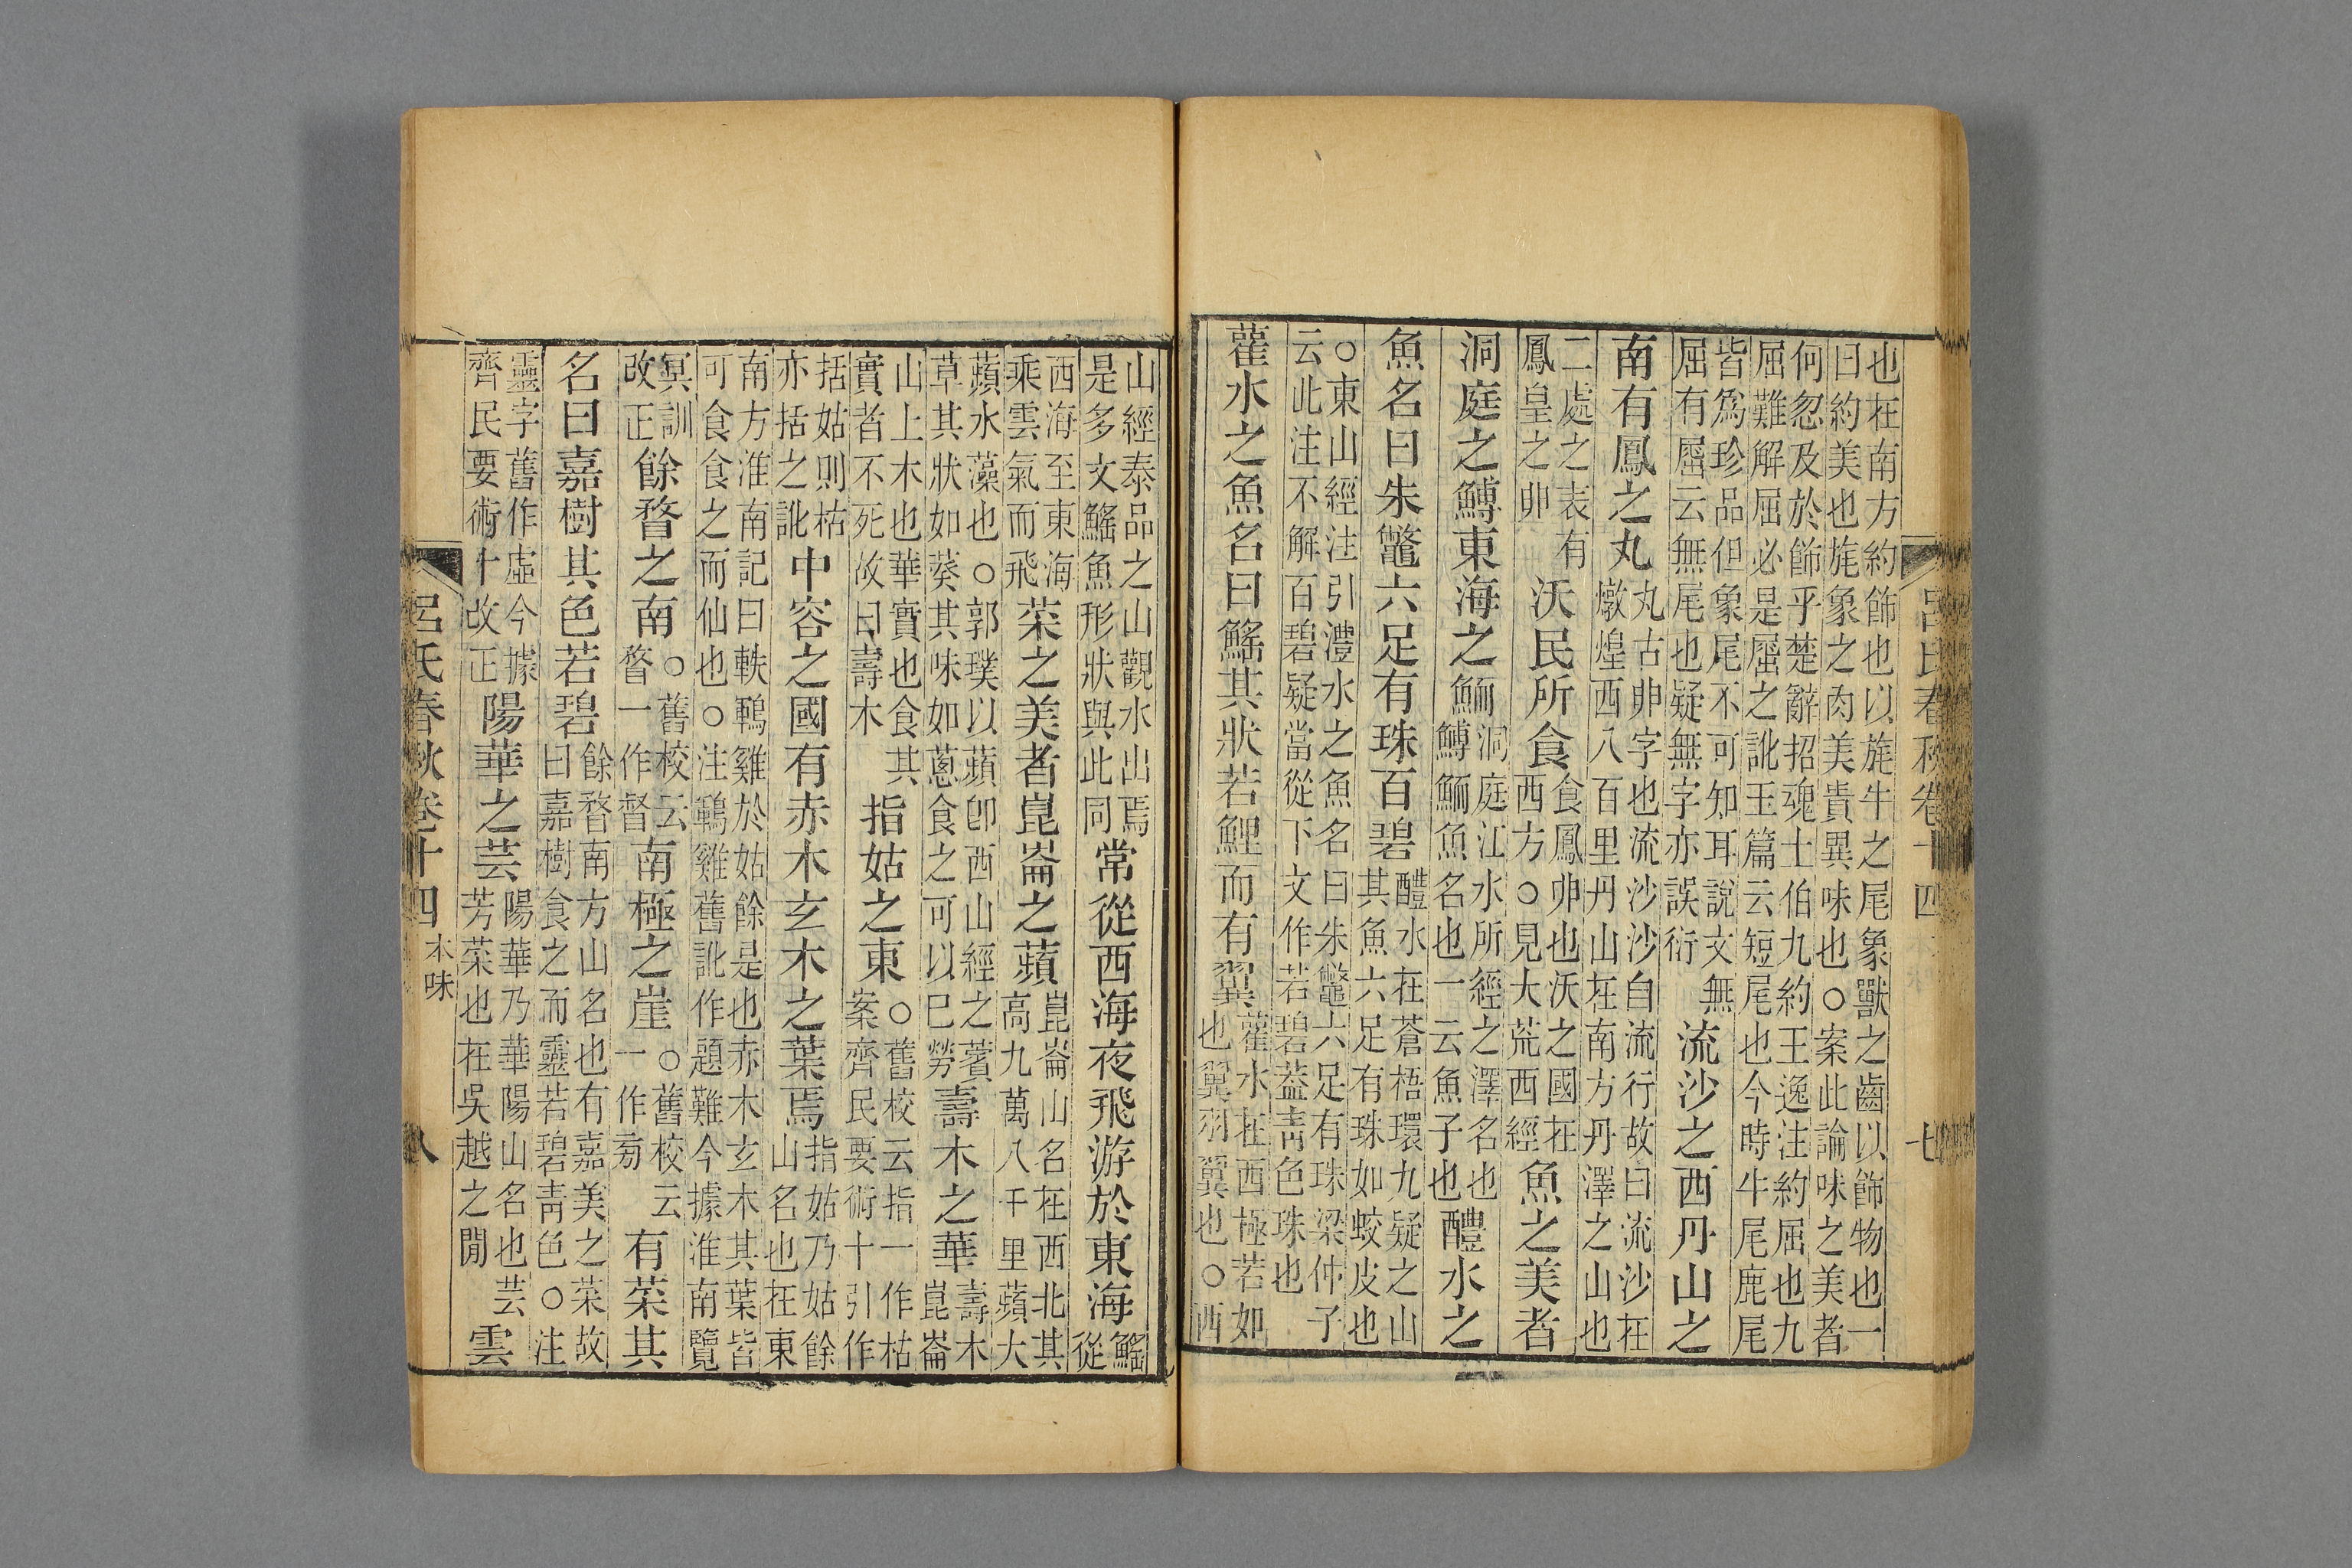 也在南方約飾也以旄牛之尾象獸之齒以飾物也一
曰約美也旄象之肉美貴異味也○案此論味之美者
何忽及於飾乎楚辭招魂土伯九約王逸注約屈也九
屈難解屈必是𡲬之訛玉篇云短尾也今時牛尾鹿尾
皆爲珍品但象尾不可知耳說文無
屈有𡲬云無尾也疑無字亦誤衍
流沙之西丹山之
南有鳳之丸
丸古卵字也流沙沙自流行故曰流沙在
燉煌西八百里丹山在南方丹澤之山也
二處之表有
鳳皇之卵
沃民所食
食鳳卵也沃之國在
西方○見大荒西經
魚之美者
洞庭之鱄東海之鮞
洞庭江水所經之澤名也
鱄鮞魚名也一云魚子也
醴水之
魚名曰朱鼈六足有珠百碧
醴水在蒼梧環九疑之山
其魚六足有珠如蛟皮也
○東山經注引澧水之魚名曰朱鼈六足有珠梁仲子
云此注不解百碧疑當從下文作若碧葢靑色珠也
雚水之魚名曰鰩其狀若鯉而有翼
雚水在西極若如
也翼羽翼也○西
呂氏春秋卷十四
七
山經泰品之山觀水出焉
是多文鰩魚形狀與此同
常從西海夜飛游於東海
鰩從
西海至東海
乘雲氣而飛
菜之美者崑崙之蘋
崑崙山名在西北其
高九萬八千里蘋大
蘋水藻也○郭璞以蘋卽西山經之薲
草其狀如葵其味如蔥食之可以巳勞
壽木之華
壽木
崑崙
山上木也華實也食其
實者不死故曰壽木
指姑之東
○舊校云指一作枯
案齊民要術十引作
括姑則枯
亦括之訛
中容之國有赤木玄木之葉焉
指姑乃姑餘
山名也在東
南方淮南記曰軼鶤雞於姑餘是也赤木玄木其葉皆
可食食之而仙也○注鶤雞舊訛作題難今據淮南覽
冥訓
改正
餘瞀之南
○舊校云
瞀一作督
南極之崖
○舊校云
一作旁
有菜其
名曰嘉樹其色若碧
餘瞀南方山名也有嘉美之菜故
曰嘉樹食之而靈若碧靑色○注
靈字舊作虛今據
齊民要術十改正
陽華之芸
陽華乃華陽山名也芸
芳菜也在吳越之閒
雲
呂氏春秋卷十四
本味
八